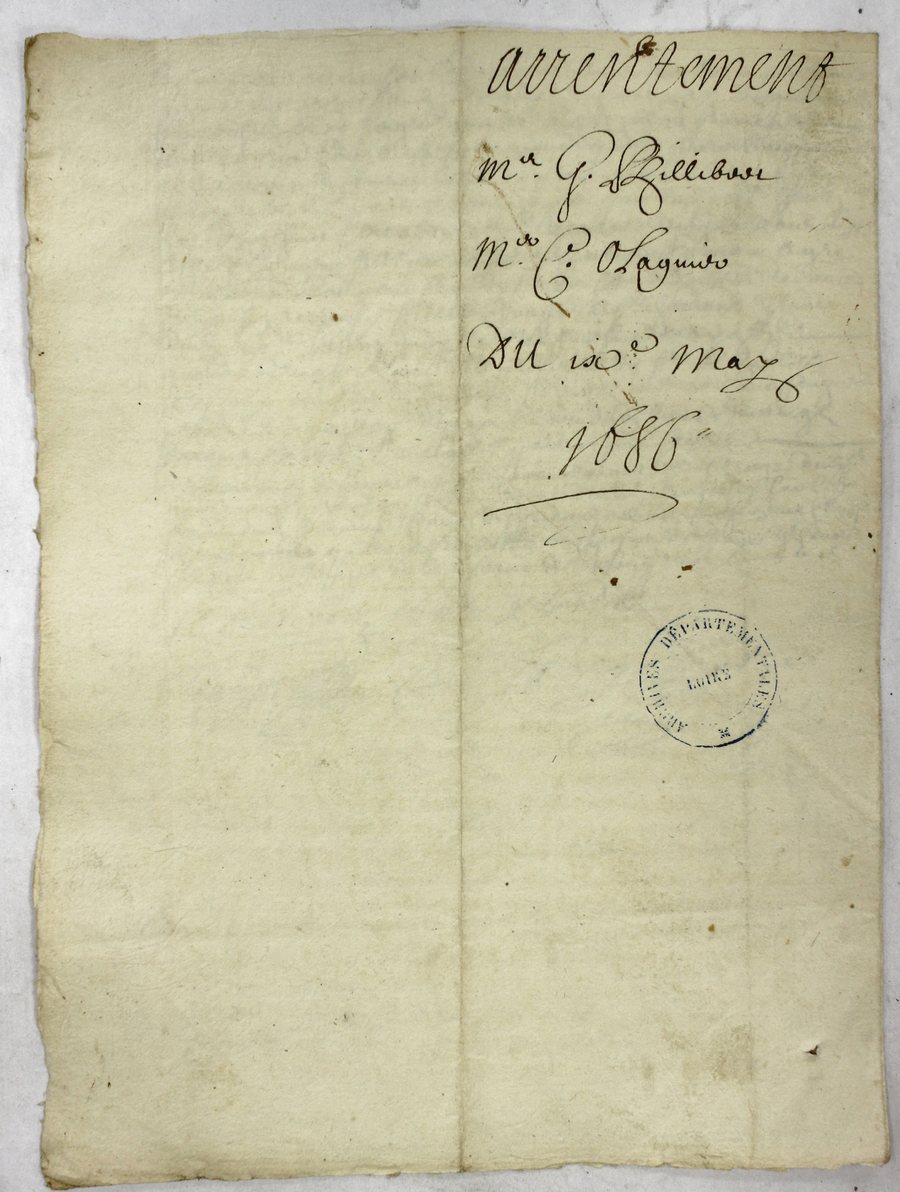 arrentement
Mr. G. Rillibert
Mr. C. OLagnier
DU ixe. May
1686
ARCHIVES DÉPARTEMENTALES
LOIRE